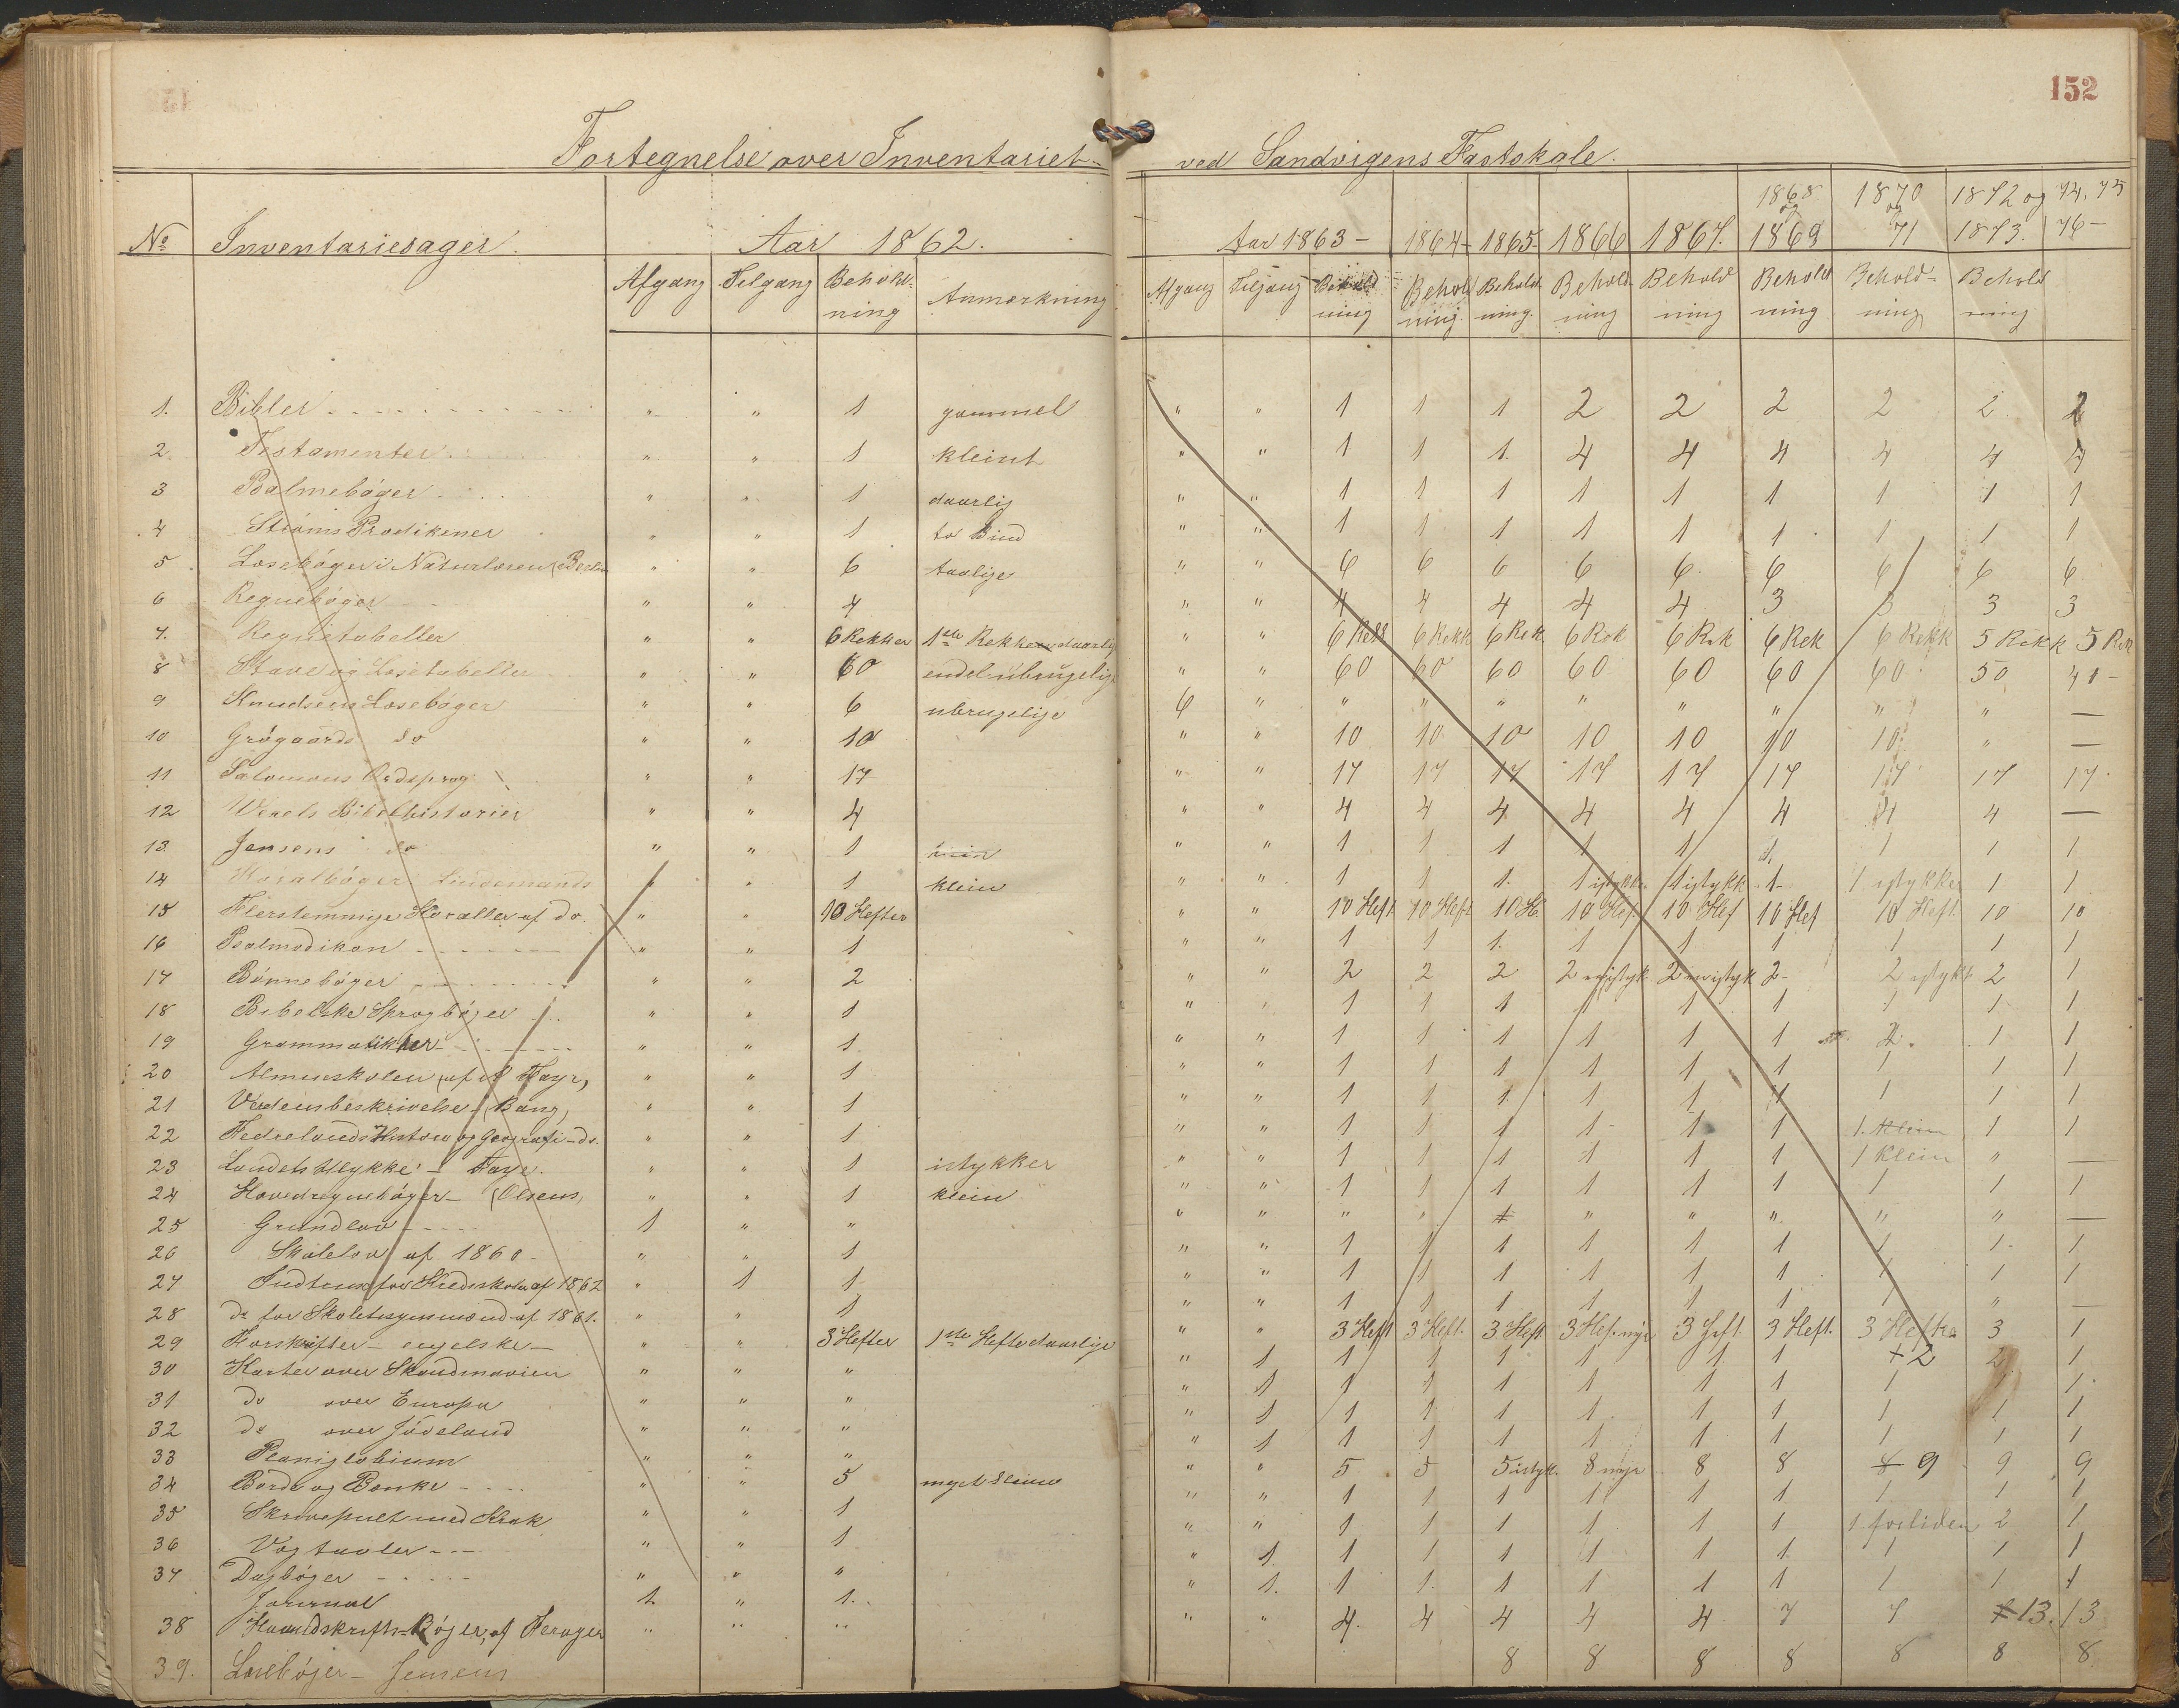 152
Fortegnelse over Inventariet ved Sandvigens Fastskole.
No Inventariesager. Aar 1862. Aar 1863 - 1864 - 1865 - 1866 1867. 1868 og 1869 1870 og 71 1872 og 1873. 74, 75 76 -
Afgang Tilgang Behold- ning Anmærkning Afgang Tilgang Behold ning Behold ning. Behold ning. Behold ning Behold ning Behold ning Behold- ning Behold ning
1. Bibler " " 1 gammel " " 1 1 1 2 2 2 2 2. 2
2. Testamenter " " 1 kleint " " 1 1 1. 4 4 4 4 4 4
3 Psalmebøger " " 1 daarlig " " 1 1 1 1 1 1 1 1 1
4 Strøms Prædikener " " 1 to Bind " " 1 1 1 1 1 1 1 1 1
5 Læsebøger i Naturlæren " " 6 taalige " " 6 6 6 6 6 6 6 6 6
6 Regnebøger " " 4 " " 4 4 4 4 4 3 3 3 3
7. Regnetabeller " " 6 Rekker 1ste Rekke daarlig " " 6 Rekk 6 Rekk 6 Rek 6 Rek 6 Rek 6 Rek 6 Rekk 5 Rekk 5 Rek
8 Stave og Læsetabeller " " 60 endel ubrugelig " " 60 60 60 60 60 60 60 50
9 Knudsens Læsebøger " " 6 ubrugelige 6 " " " " " " " " " —
10 Grøgaards do " " 10 " " 10 10 10 10 10 10 10 " —
11 Salomons Ordsprog " " 17 " " 17 17 17 17 17 17 17 17 17.
12 Wexels Bibelhistorier " " 4 " " 4 4 4 4 4 4 4 4 —
13 Jensens do " " 1 " " 1 1 1 1 1 1 1 1 1
14 Koralbøger Lindemands " " 1 klein " " 1 1 1. 1 istykke. 1 istykk 1- 1 istykker 1 1
15 Flerstemmige Koraller af do. " " 10 Hefter " " 10 Heft 10 Heft 10 H. 10 Hef. 10 Hef 10 Hef 10 Heft. 10 10
16 Psalmodikon " " 1 " " 1 1 1. 1 1 1 1 1 1
17 Bønnebøger " " 2 " " 2 2 2 2 2 2- 2 istykk 2 1
18 Bibelske Sprogbøger " " 1 " " 1 1 1 1 1 1 1 1 1
19 Grammatikker " " 1 " " 1 1 1 1 1 1 2. 1 1
20 Almueskolen (af A Faye) " " 1 " " 1 1 1 1 1 1 1 1 1
21 Verdensbeskrivelse (Bang) " " 1 " " 1 1 1 1 1 1 1 1 1
22 Fedrelands Historie og Geografi - do. " " 1 " " 1 1 1 1 - 1 1 1. klein 1 1
23 Landets Ulykke - Faye. " " 1 istykker " " 1 1 1 1 1 1 1 klein " —
24 Hovedregnebøger - (Olsens) " " 1 klein " " 1 1 1 1 1 1 1 1 1
25 Grundlov 1 " " " " " " " " " " " —
26 Skolelov af 1860 - " " 1 " " 1 1 1 1 1 1 1 1. 1
27 af 1862 " 1 1 " " 1 1 1 1 1 1 1 1 1
28 do for Skoletilsynsmænd af 1861. " " 1 " " 1 1 1 1 1 1 1 " —
29 Forskrifter - engelske - " " 3 Hefter 1ste Hefte daarlige " " 3 Heft 3 Heft. 3 Heft 3 Hef. nye 3 Heft. 3 Heft. 3 Hefter 3 1
30 Karter over Skandinavien " " " " 1 1 1 1 1 1 1 2 2 1
31 do over Europa " " " " 1 1 1 1 1 1 1 1 1.
32 do over Jødeland " " " " 1 1 1 1 1. 1 1 1 1 1
33 Planiglobium " " " " 1 1 1 1 1 1 1 1 1 1
34 Borde og Benke " " 5 meget kleine " " 5 5 5 istyk. 8 nye 8 8 8 9 9 9
35 Skrivepult med Krak " " 1 " " 1 1 1 1 1 1 1. 1 1
36 Vægtavler " " 1 " " 1 1 1 1 1 1 1. forliden 2 1
37 Dagbøger " " " " 1. 1 1 1 1 1 1. 1 1 1
Journal 1. " 1. " 1. 1 1. 1 1 1 1 1 1 1
38 Haandskrifts-Bøger, af " " " " " 4. 4 4 4 4 7 7 13. 13
39. Læsebøger - Jensens 8 8 8 8 8 8 8.